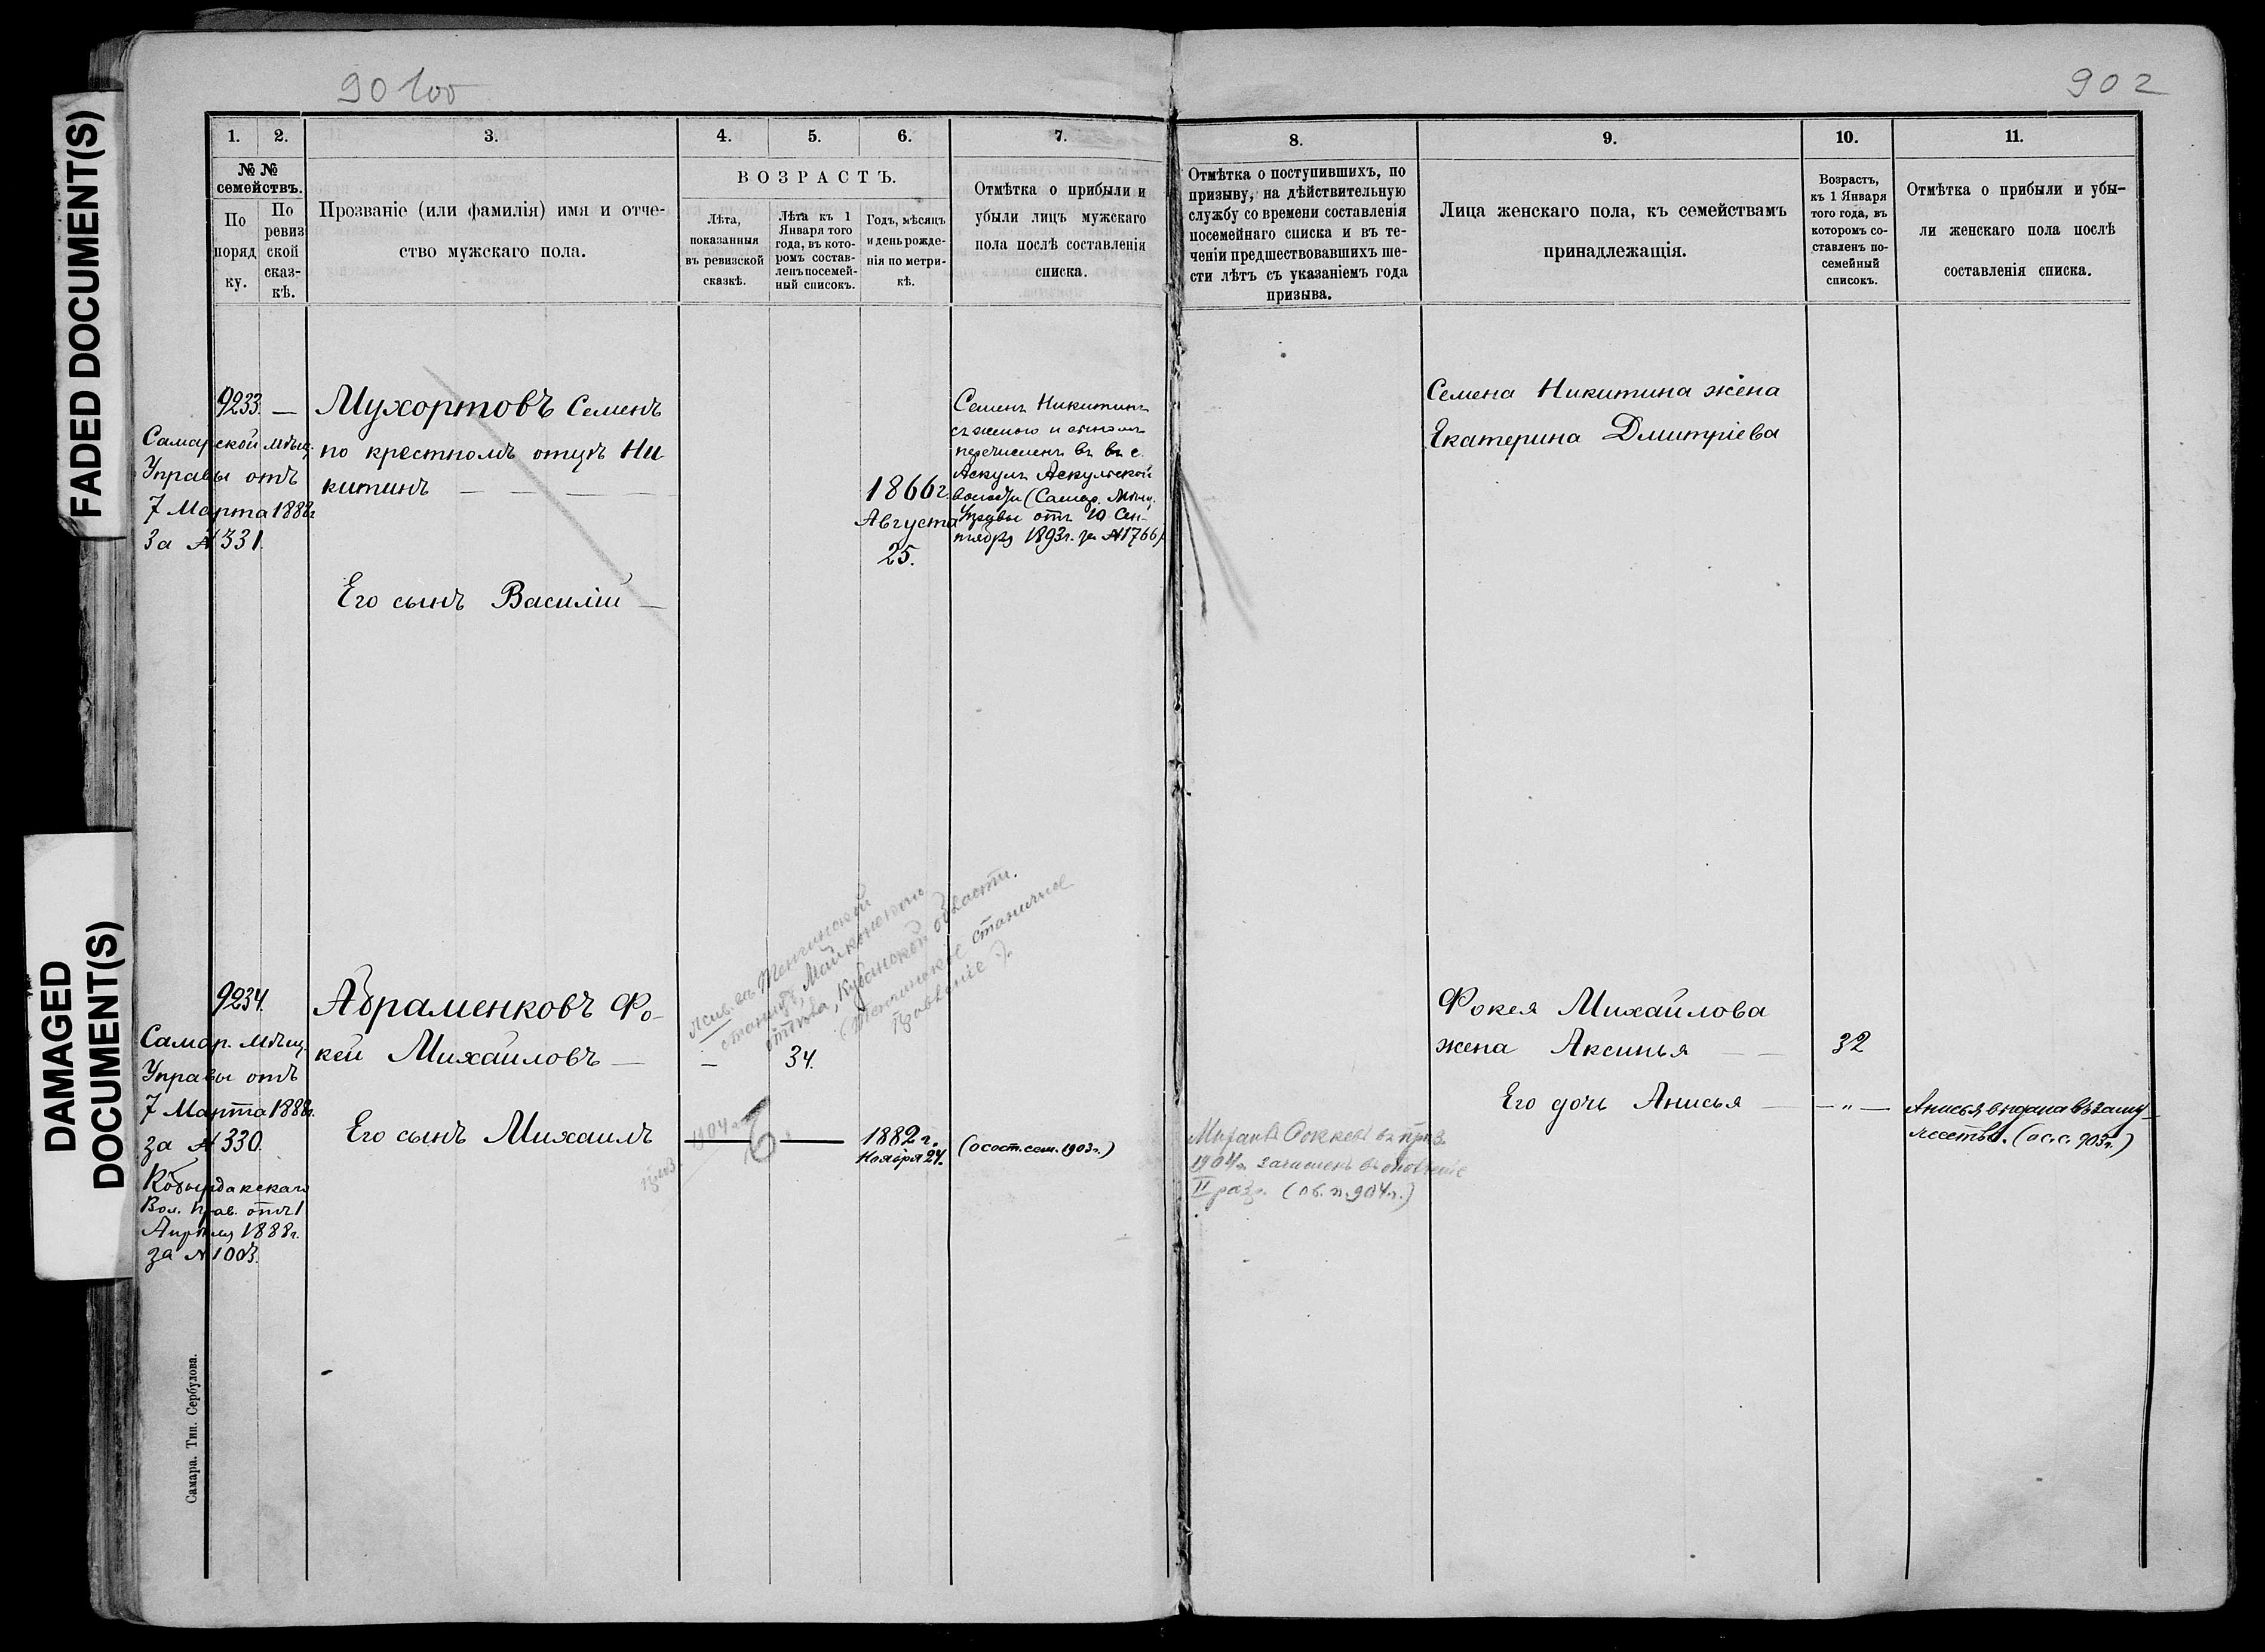 FADED DOCUMENT(S)
DAMAGED
DOCUMENT(S)
90 100
902
1.
2.
3.
4.
5.
6.
7.
№ №
семействъ.
По
поряд
ку.
По
ревиз
ской
сказ-
кѣ.
Прозваніе (или фамилія) имя и отче-
ство мужскаго пола.
ВОЗРАСТЪ.
Лѣта,
показанныя
въ ревизской
сказкѣ.
Лѣта къ 1
Января того
года, въ кото-
ромъ состав-
ленъ посемей-
ный списокъ.
Годъ, мѣсяцъ
и день рожде-
нія по метри-
кѣ.
Отмѣтка о прибыли и
убыли лицъ мужскаго
пола послѣ составленія
списка.
8.
9.
10.
11.
Отмѣтка о поступившихъ, по
призыву, на дѣйствительную
службу со времени составленія
посемейнаго списка и въ те-
ченіи предшествовавшихъ ше-
сти лѣтъ съ указаніемъ года
призыва.
Лица женскаго пола, къ семействамъ
принадлежащія.
Возрастъ,
къ 1 Января
того года, въ
которомъ со-
ставленъ по-
семейный
списокъ.
Отмѣтка о прибыли и убы-
ли женскаго пола послѣ
составленія списка.
9233. —
Самарской мѣщ.
Управы отъ
7 Марта 1888г
За № 331.
Мухортовъ Семенъ
по крестномъ отцѣ Ни
китинъ — — — —
1866г.
Августа
25.
Семенъ Никитинъ
съ женою и сыномъ
перечисленъ въ въ с.
Аскулъ Аскульской
волости (Самар. Мѣщ.
Управы отъ 10 Сен-
тября 1893г. за №1766)
Его сынъ Василій —
Семена Никитина жена
Екатерина Дмитріева
9234.
Самар. Мѣщ.
Управы отъ
7 Марта 1888г.
за № 330.
Вол. Прав. отъ 1
Апрѣля 1888г.
за № 1003.
Абраменковъ Фо-
кей Михайловъ —
— 34.
Жив. въ Тенгинской
станицѣ, Майкопскаго
отдѣла, Кубанской области.
(Тенгинское станичное
правленіе).
Его сынъ Михаилъ
приз. 1904 г.
6
1882 г.
Ноября 24.
(о сост. сем. 1903г.)
Михаилъ Фокеевъ въ приз.
1904г. зачисленъ въ ополченіе
II разр. (об. п. 904г.)
Фокея Михайлова
жена Аксинья — —
32
Его дочь Анисья —
— " —
Анисья выдана въ заму-
жество. (о с. с. 903г.)
Самара. Тип. Сербулова.